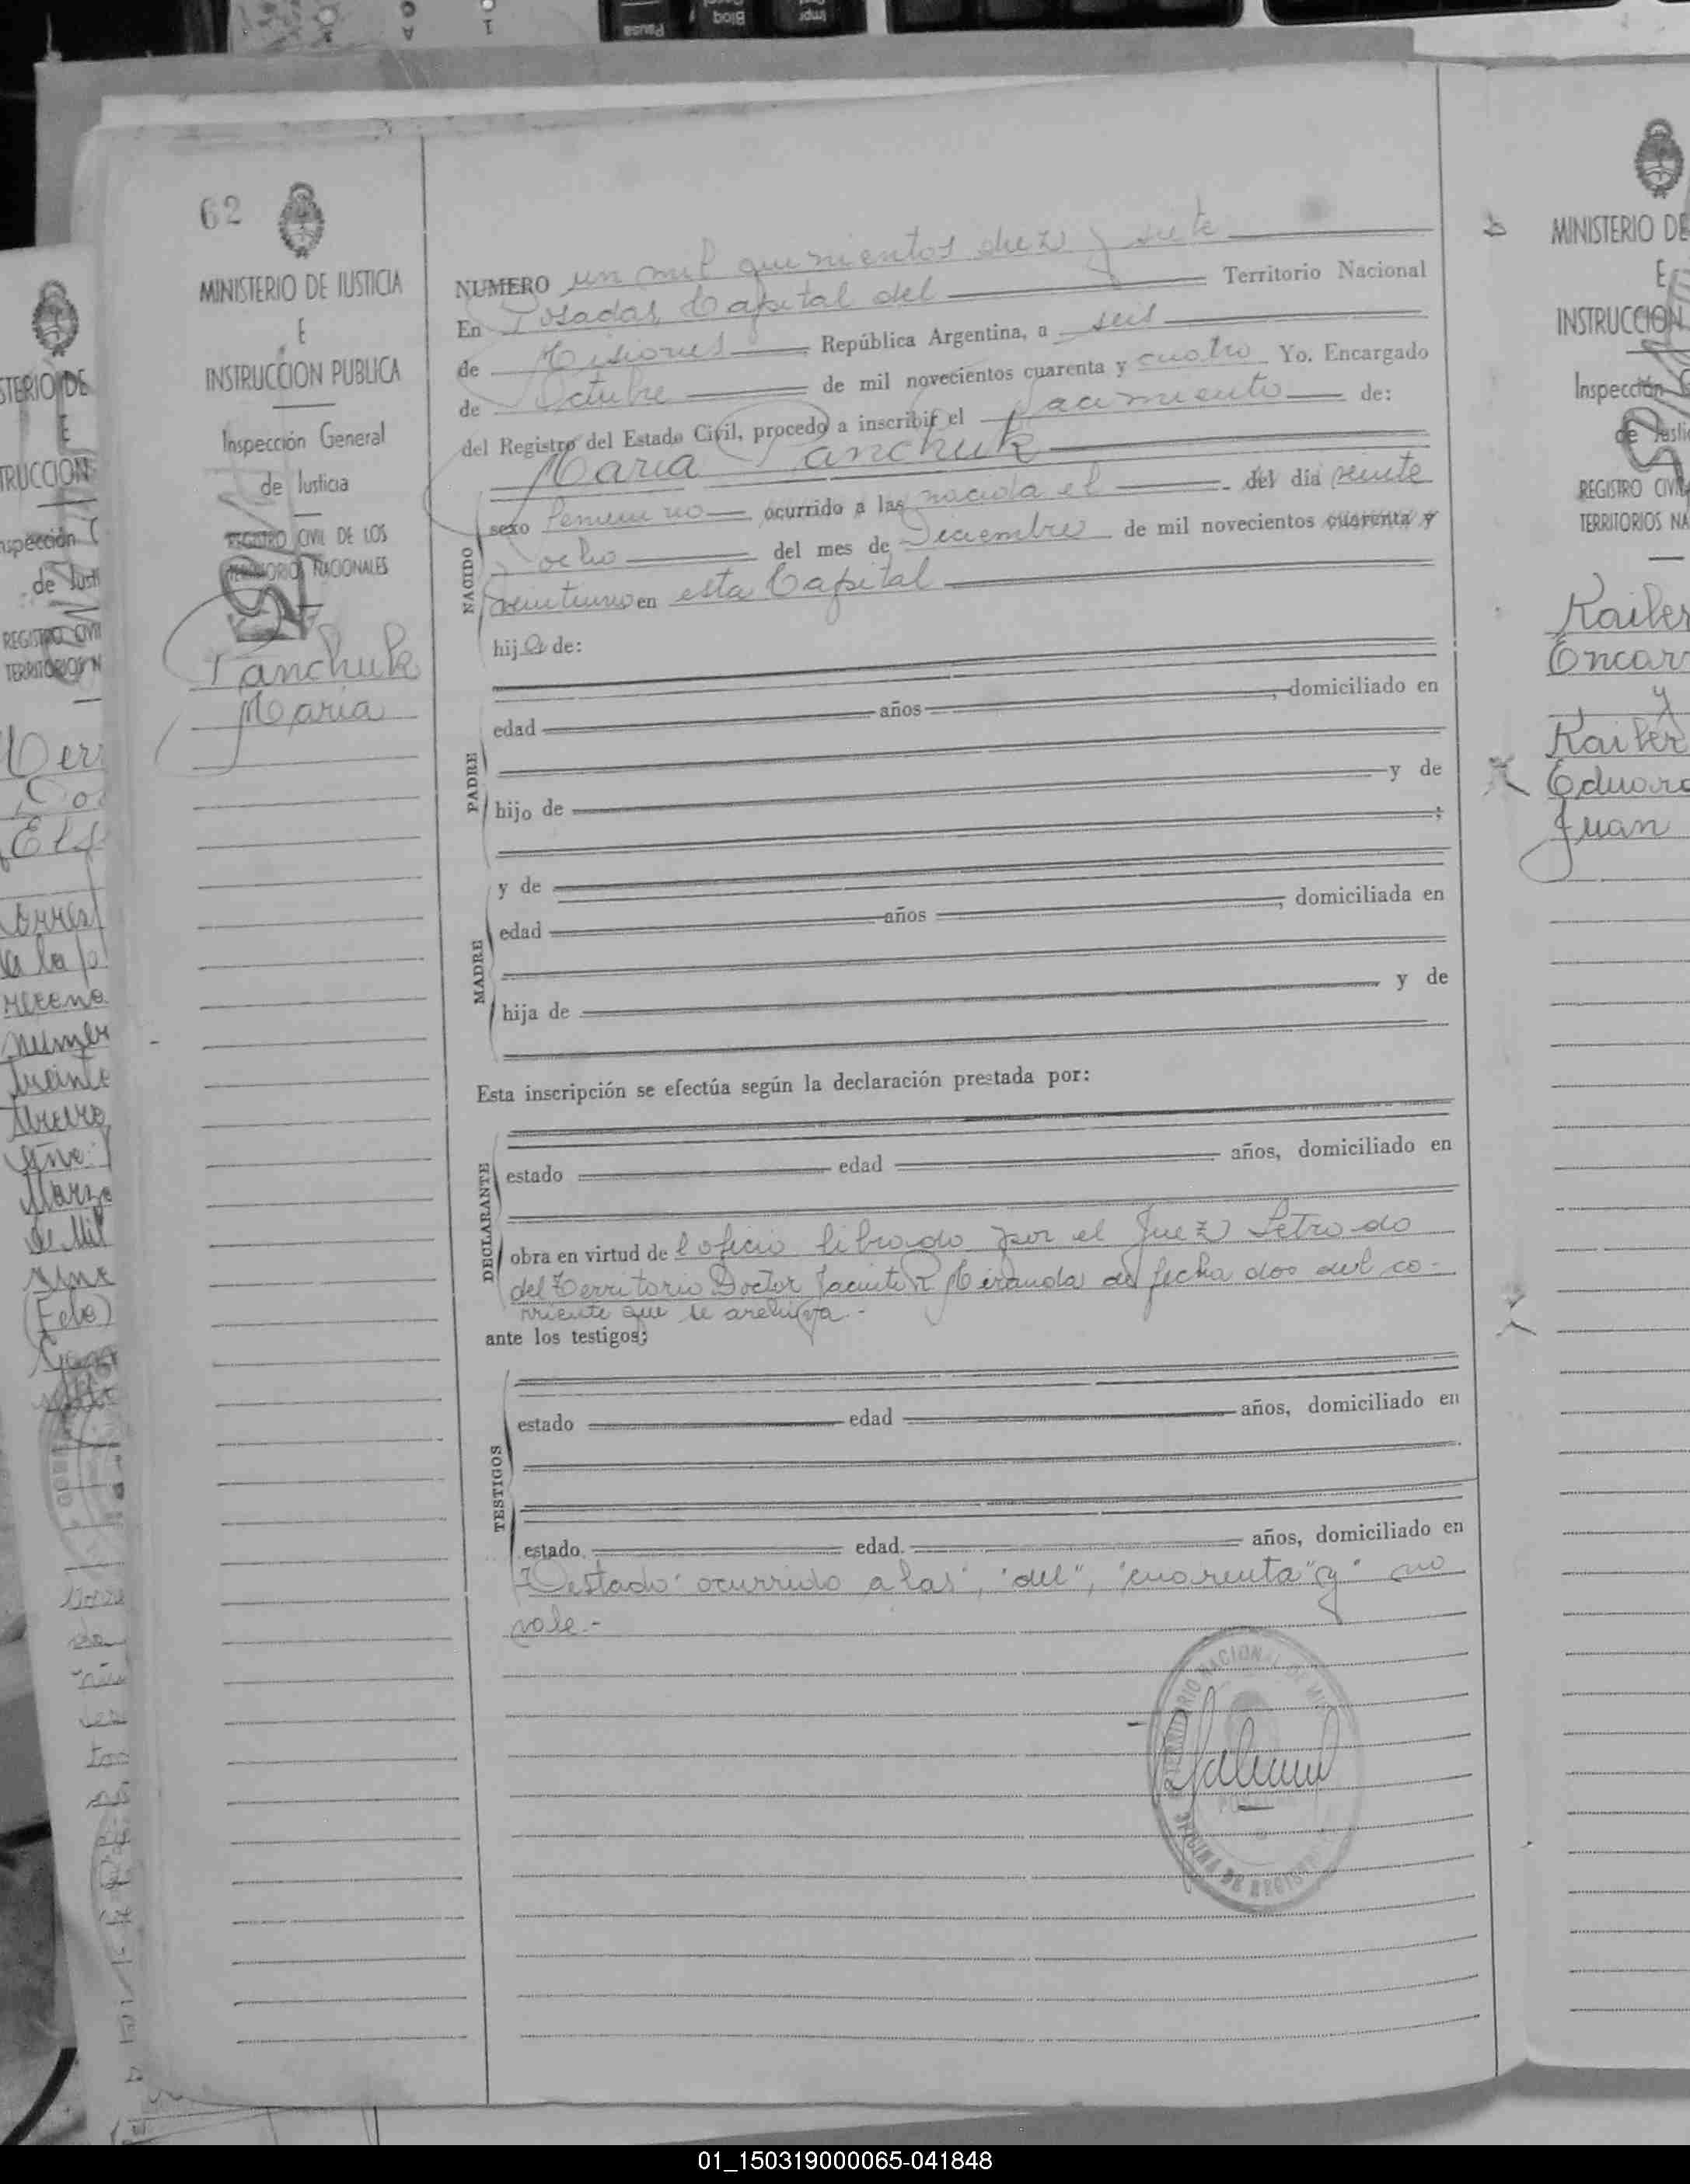 Pausa
Bloq
Impr
62
MINISTERIO DE JUSTICIA
E
INSTRUCCION PUBLICA
Inspección General
de Justicia
REGISTRO CIVIL DE LOS
TERRITORIOS NACIONALES
Panchuk
Maria
NUMERO un mil quinientos diez y siete
En Posadas, Capital del Territorio Nacional
de Misiones República Argentina, a seis
de Octubre de mil novecientos cuarenta y cuatro Yo. Encargado
del Registro del Estado Civil, procedo a inscribir el nacimiento de:
Maria Panchuk
NACIDO
sexo femenino ocurrido a las nacida el del día veinte
y ocho del mes de Diciembre de mil novecientos cuarenta y
veintiuno en esta Capital
hija de:
PADRE
edad años , domiciliado en
hijo de y de
;
MADRE
y de
edad años ; domiciliada en
hija de y de
Esta inscripción se efectúa según la declaración prestada por:
DECLARANTE
estado edad años, domiciliado en
obra en virtud del oficio librado por el Juez Letrado
del Territorio Doctor Jacinto R Miranda de fecha dos del co-
rriente que se archiva.-
ante los testigos:
TESTIGOS
estado edad años, domiciliado en
estado edad. años, domiciliado en
Testado "ocurrido a las", "del", "cuarenta" "y" no
vale.-
TERRITORIO NACIONAL DE
OFICINA DE REGISTRO
MINISTERIO DE
E
INSTRUCCION
Inspección G
de Justi
REGISTRO CIVIL
TERRITORIOS NA
Kaiber
Encar
y
Kaiber
Eduard
Juan
01_150319000065-041848